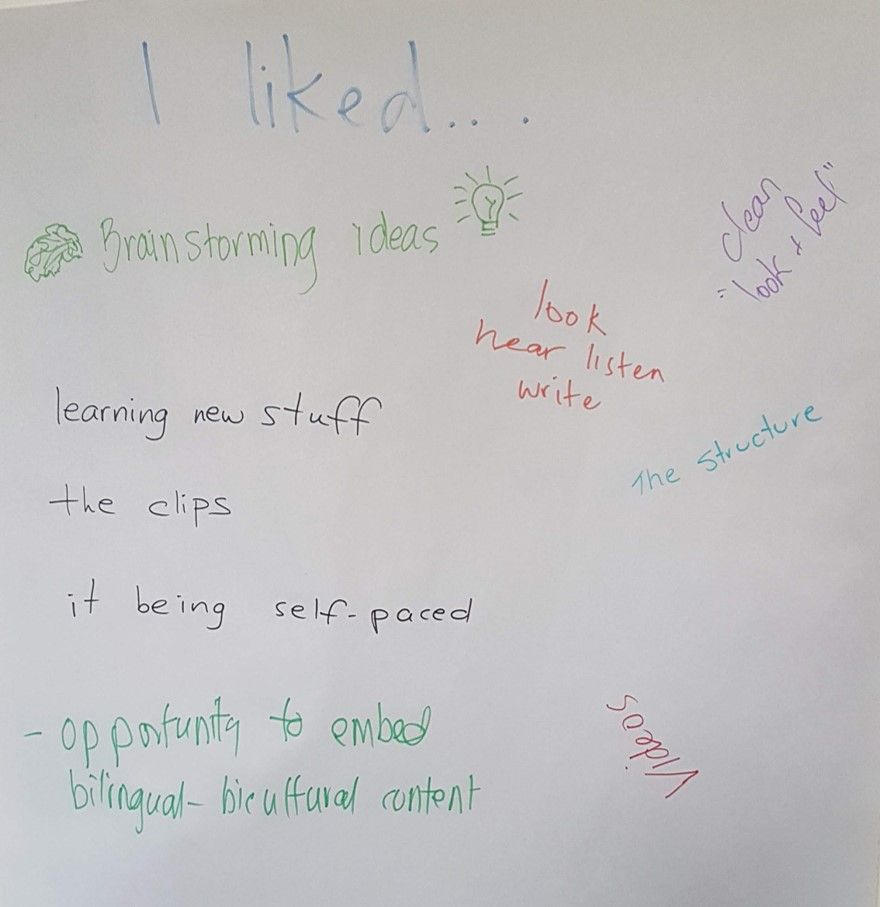 I liked...
Brainstorming ideas
clean
"look + feel"
look
hear listen
write
learning new stuff
The structure
the clips
it being self-paced
- opportunity to embed
bilingual-bicultural content
Videos